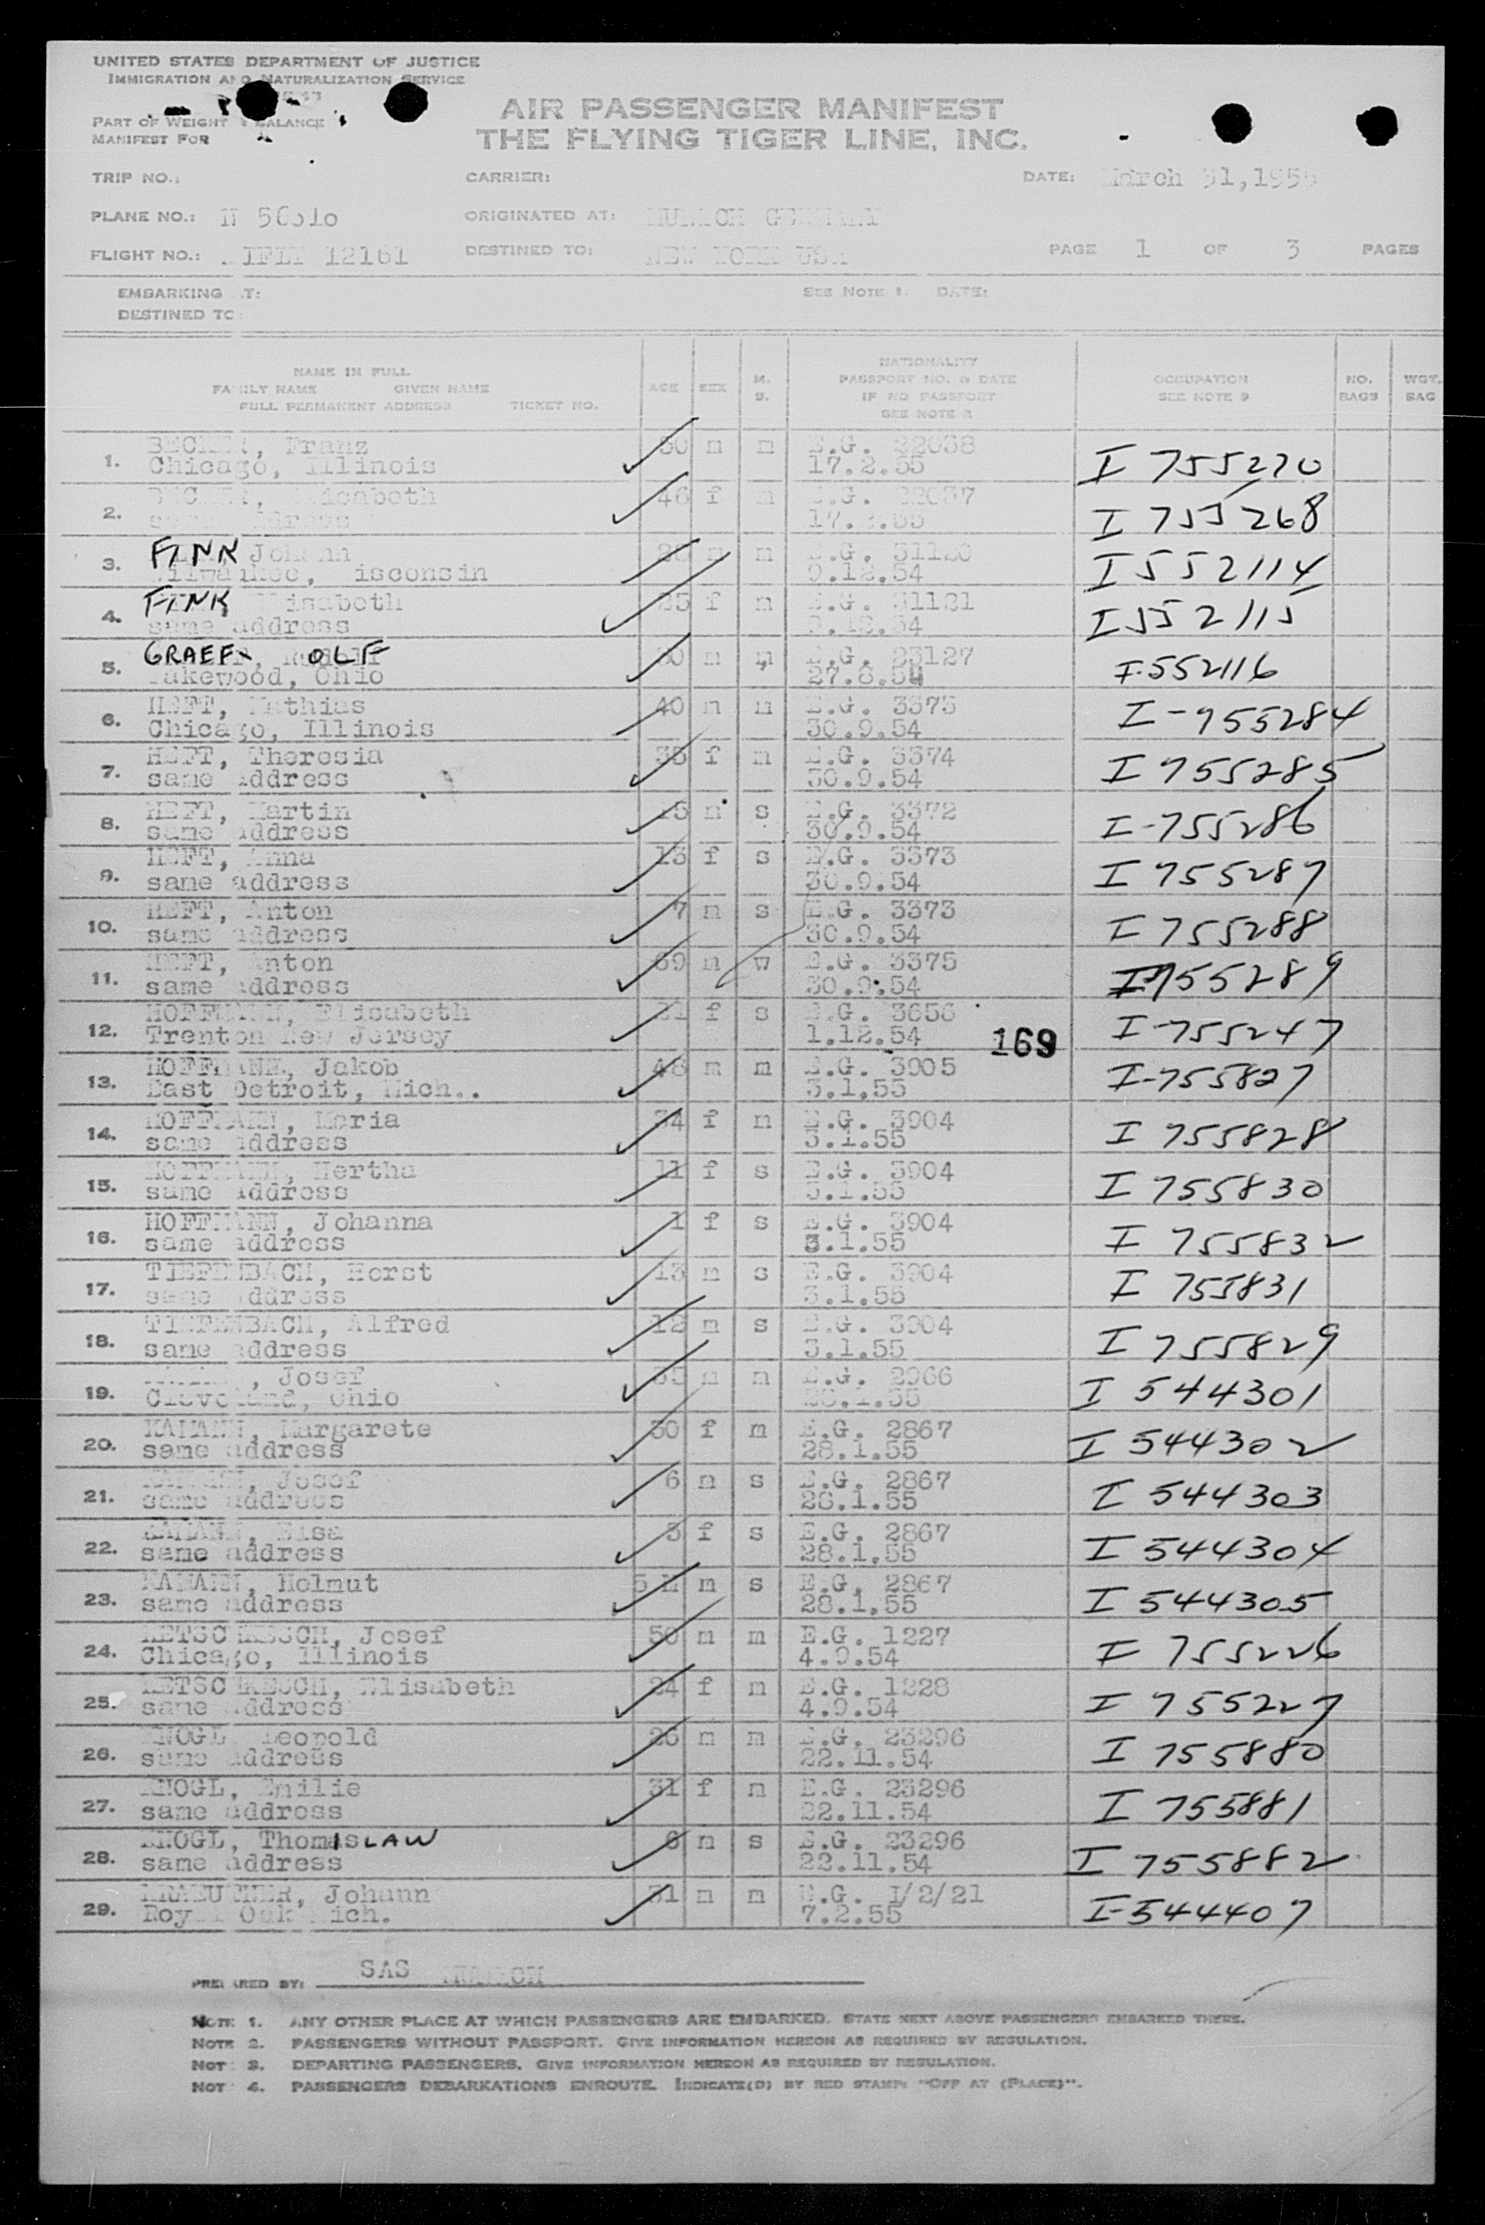 UNITED STATES DEPARTMENT OF JUSTICE
IMMIGRATION AND NATURALIZATION SERVICE
PART OF WEIGHT & BALANCE
MANIFEST FOR
AIR PASSENGER MANIFEST
THE FLYING TIGER LINE, INC.
TRIP NO.: CARRIER: DATE: March 31, 1955
PLANE NO.: N ORIGINATED AT: MUNICH GERMANY
FLIGHT NO.: 12161 DESTINED TO: NEW YORK USA PAGE 1 OF 3 PAGES
EMBARKING AT: SEE NOTE 1. DATE:
DESTINED TO:
NAME IN FULL
FAMILY NAME GIVEN NAME
FULL PERMANENT ADDRESS TICKET NO.
AGE SEX M. S.
NATIONALITY
PASSPORT NO. & DATE
IF NO PASSPORT
SEE NOTE 2
OCCUPATION
SEE NOTE 3
NO. BAGS
WGT. BAG
1. BECKER, Franz 50 m m E.G. 22038 I 755270
Chicago, Illinois 17.2.55
2. BECKER, Elisabeth 46 f m E.G. 22037 I 755268
same address 17.2.55
3. FINK Johann m m E.G. 31120 I 552114
Milwaukee, Wisconsin 9.12.54
4. FINK Elisabeth 25 f m E.G. 31121 I 552115
same address 9.12.54
5. GRAEF, Rudolf OLF 30 m m E.G. 23127 I-552116
Lakewood, Ohio 27.8.54
6. HEFT, Mathias 40 m m E.G. 3373 I-755284
Chicago, Illinois 30.9.54
7. HEFT, Theresia 35 f m E.G. 3374 I 755285
same address 30.9.54
8. HEFT, Martin 15 m s E.G. 3372 I-755286
same address 30.9.54
9. HEFT, Anna 13 f s E.G. 3373 I 755287
same address 30.9.54
10. HEFT, Anton 7 m s E.G. 3373 I 755288
same address 30.9.54
11. HEFT, Anton 69 m w E.G. 3375 I 755289
same address 30.9.54
12. HOFFMANN, Elisabeth 21 f s E.G. 3656 I-755247
Trenton New Jersey 1.12.54 169
13. HOFFMANN, Jakob 48 m m E.G. 3905 I-755827
East Detroit, Mich.. 3.1.55
14. HOFFMANN, Maria 34 f m E.G. 3904 I 755828
same address 3.1.55
15. HOFFMANN, Hertha 11 f s E.G. 3904 I 755830
same address 3.1.55
16. HOFFMANN, Johanna 1 f s E.G. 3904 I 755832
same address 3.1.55
17. TIEFENBACH, Horst 13 m s E.G. 3904 I 755831
same address 3.1.55
18. TIEFENBACH, Alfred 12 m s E.G. 3904 I 755829
same address 3.1.55
19. KAMANN, Josef 35 m m E.G. 2966 I 544301
Cleveland, Ohio 28.1.55
20. KAMANN, Margarete 30 f m E.G. 2867 I 544302
same address 28.1.55
21. KAMANN, Josef 6 m s E.G. 2867 I 544303
same address 28.1.55
22. KAMANN, Elsa 3 f s E.G. 2867 I 544304
same address 28.1.55
23. KAMANN, Helmut 5 M m s E.G. 2867 I 544305
same address 28.1.55
24. Josef 50 m m E.G. 1227 I 755226
Chicago, Illinois 4.9.54
25. Elisabeth 24 f m E.G. 1228 I 755227
same address 4.9.54
26. KNOGL, Leopold 26 m m E.G. 23296 I 755880
same address 22.11.54
27. KNOGL, Emilie 31 f m E.G. 23296 I 755881
same address 22.11.54
28. KNOGL, Thomas ISLAW 6 m s E.G. 23296 I 755882
same address 22.11.54
29. Johann 31 m m E.G. I/2/21 I-544407
Royal Oak Mich. 7.2.55
PREPARED BY: SAS MUNICH
NOTE 1. ANY OTHER PLACE AT WHICH PASSENGERS ARE EMBARKED. STATE NEXT ABOVE PASSENGERS EMBARKED THERE.
NOTE 2. PASSENGERS WITHOUT PASSPORT. GIVE INFORMATION HEREON AS REQUIRED BY REGULATION.
NOTE 3. DEPARTING PASSENGERS. GIVE INFORMATION HEREON AS REQUIRED BY REGULATION.
NOTE 4. PASSENGERS DEBARKATIONS ENROUTE. INDICATE(D) BY RED STAMP: "OFF AT (PLACE)".